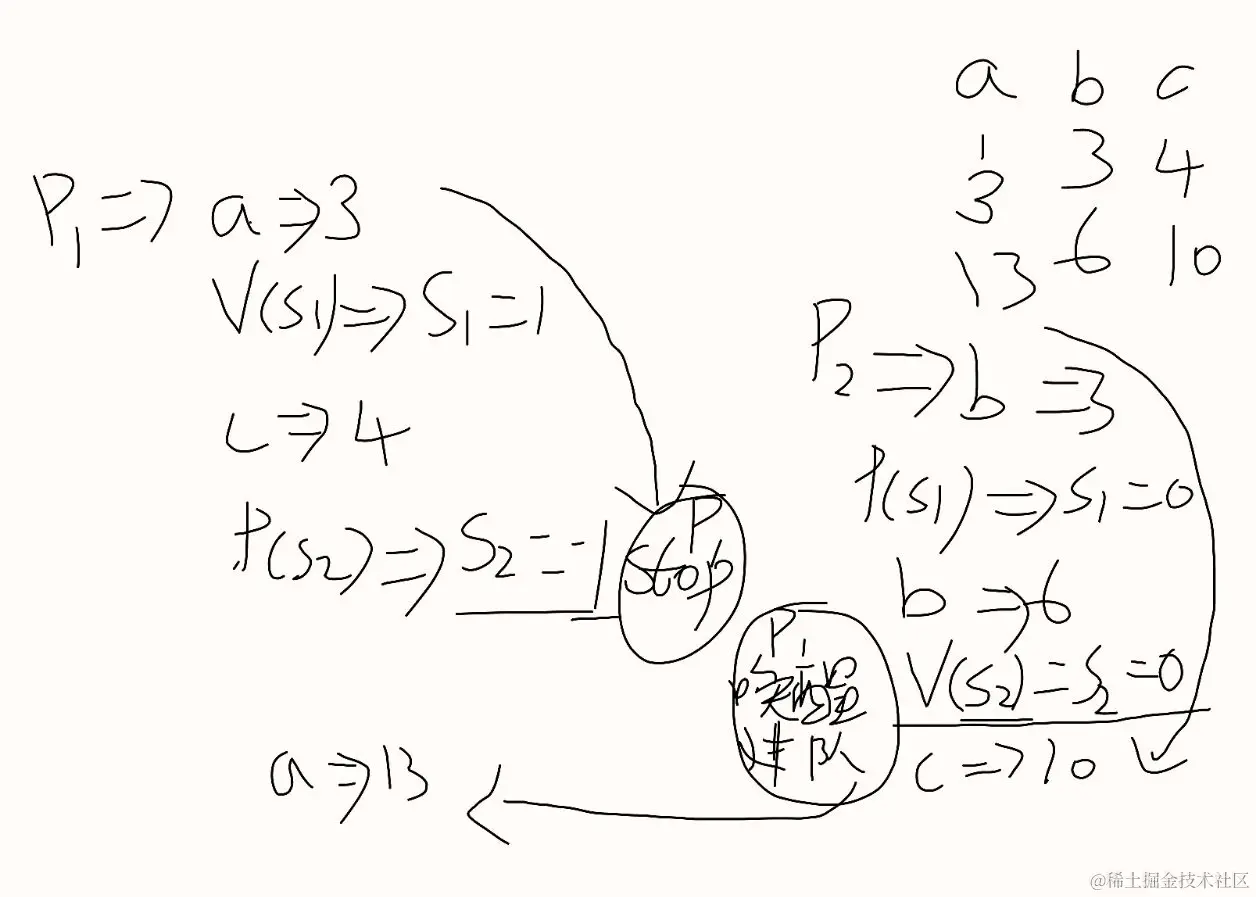 a b c
1 3 4
3
13 6 10
P1 => a => 3
V(S1) => S1 = 1
c => 4
P(S2) => S2 = -1
P stop
a => 13
P2 => b => 3
P(S1) => S1 = 0
b => 6
V(S2) = S2 = 0
c => 10
P1
唤醒
进队
@稀土掘金技术社区